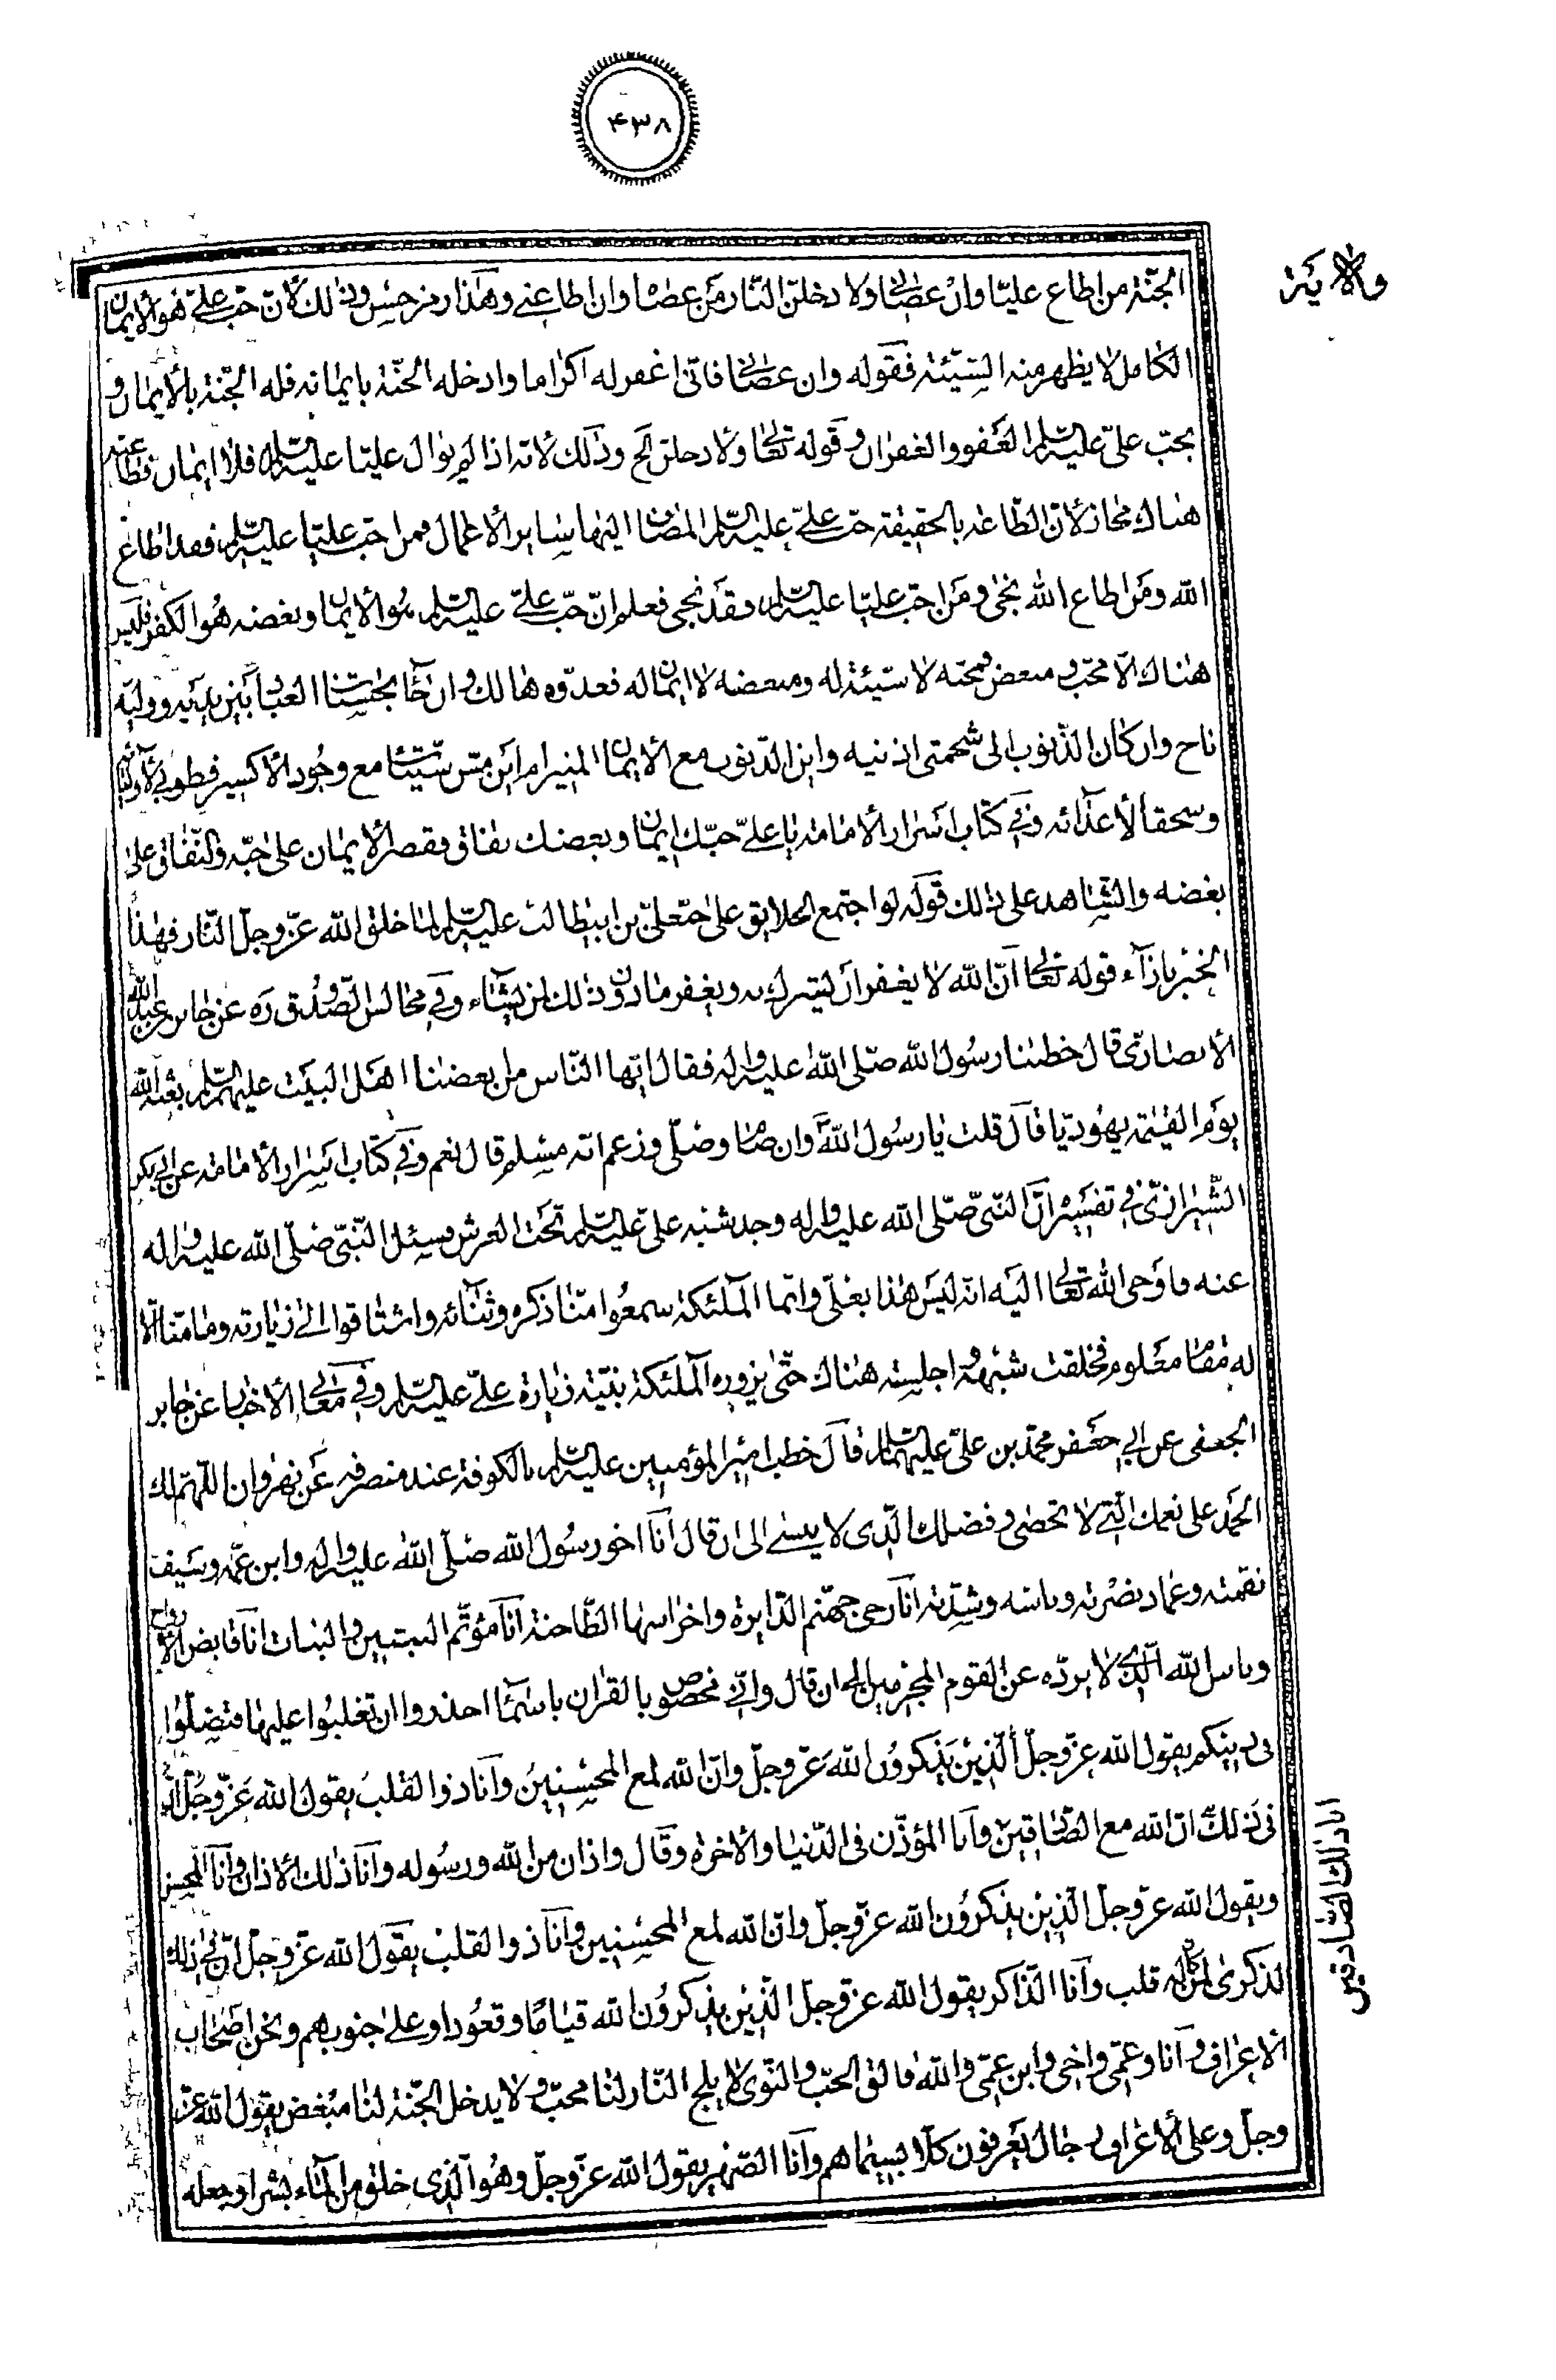 ۴۳۸
ولایة
الجنّة من اطاع علیّا وان عصانی ولادخلنّ النّار من عصاه وان اطاعنی وهذا رمز حسن وذلک لأنّ حبّ علیّ هو الأیمان
الکامل لا یظهر منه السّیّئة فقوله وان عصانی فانّی اغفر له اکراما وادخله الجنّة بایمانه فله الجنّة بالأیمان و
بحبّ علیّ علیه السّلم العفو والغفران وقوله تعالی ولادخلنّ الخ وذلک لانه اذا لم یوال علیّا علیه السّلم فلا ایمان فطاعته
هناک مجاز لانّ الطّاعة بالحقیقة حبّ علیّ علیه السّلم المضاف الیها سایر الأعمال فمن احبّ علیّا علیه السّلم فقد اطاع
الله ومن اطاع الله نجی ومن احبّ علیّا علیه السّلم فقد نجی فعلم انّ حبّ علیّ علیه السّلم هو الأیمان وبغضه هو الکفر فلیس
هناک الّا محبّ و مبغض فمحبّه لا سیّئة له ومبغضه لا ایمان له فعدوّه هالک وان جآء بحسنات العباد بین یدیه وولیّه
ناج وان کان الذّنوب الی شحمتی اذنیه واین الذّنوب مع الأیمان المنیر ام این مسّ سیّئاته مع وجود الأکسیر فطوبی لأولیائه
وسحقا لأعدائه وفی کتاب اسرار الأمامة یا علیّ حبّک ایمان وبغضک نفاق فقصر الأیمان علی حبّه والنّفاق علی
بغضه والشّاهد علی ذلک قوله لو اجتمع الخلایق علی حبّ علیّ بن ابیطالب علیه السّلم لما خلق الله عزّ وجلّ النّار فهذا
الخبر بازآء قوله تعالی انّ الله لا یغفر ان یشرک به ویغفر ما دون ذلک لمن یشآء وفی مجالس الصّدوق ره عن جابر بن عبد الله
الأنصاریّ قال خطبنا رسول الله صلّی الله علیه واله فقال ایّها النّاس من ابغضنا اهل البیت علیهم السّلم بعثه الله
یوم القیمة یهودیّا قال قلت یا رسول الله وان صام وصلّی وزعم انّه مسلم قال نعم وفی کتاب اسرار الأمامة عن ابی بکر
الشّیرازیّ فی تفسیره انّ النّبیّ صلّی الله علیه واله وجد شبه علیّ علیه السّلم تحت العرش وسئل النّبیّ صلّی الله علیه واله
عنه فاوحی الله تعالی الیه انّه لیس هذا بعلیّ وانّما الملئکة سمعوا منّا ذکره وثنائه واشتاقوا الی زیارته وما منّا الّا
له مقام معلوم فخلقت شبهه و اجلسته هناک حتّی یزوره الملئکة بنیّة زیارة علیّ علیه السّلم وفی معانی الأخبار عن جابر
الجعفی عن ابی جعفر محمّد بن علیّ علیهما السّلم قال خطب امیر المؤمنین علیه السّلم بالکوفة عند منصرفه عن نهروان اللّهمّ لک
الحمد علی نعمک الّتی لا تحصی و فضلک الّذی لا ینسی الی ان قال انا اخو رسول الله صلّی الله علیه واله وابن عمّه وسیف
نقمته وعماد نصرته وباسه وشدّته انا رحی جهنّم الدّایرة واضراسها الطّاحنة انا مؤتّم البنین والبنات انا قابض الأرواح
وباس الله الّذی لا یردّه عن القوم المجرمین الی ان قال وانّی مخصوص بالقران باسمآء احذروا ان تغلبوا علیها فتضلّوا
فی دینکم یقول الله عزّ وجلّ الّذین یذکرون الله عزّ وجلّ وانّ الله لمع المحسنین وانا ذو القلب یقول الله عزّ وجلّ انّ
فی ذلک انّ الله مع الصّادقین وانا المؤذّن فی الدّنیا والأخرة وقال واذان من الله ورسوله وانا ذلک الأذان وانا المحسن
ویقول الله عزّ وجلّ الّذین یذکرون الله عزّ وجلّ وانّ الله لمع المحسنین وانا ذو القلب یقول الله عزّ وجلّ انّ فی ذلک
لذکری لمن کان له قلب وانا الذّاکر یقول الله عزّ وجلّ الّذین یذکرون الله قیاما وقعودا وعلی جنوبهم ونحن اصحاب
الأعراف وانا وعمّی واخی وابن عمّی والله فالق الحبّ والنّوی لا یلج النّار لنا محبّ ولا یدخل الجنّة لنا مبغض یقول الله عزّ
وجلّ وعلی الأعراف رجال یعرفون کلّا بسیماهم وانا الصّهر یقول الله عزّ وجلّ وهو الّذی خلق من المآء بشرا وجعله
انا ذلک الصّادقین